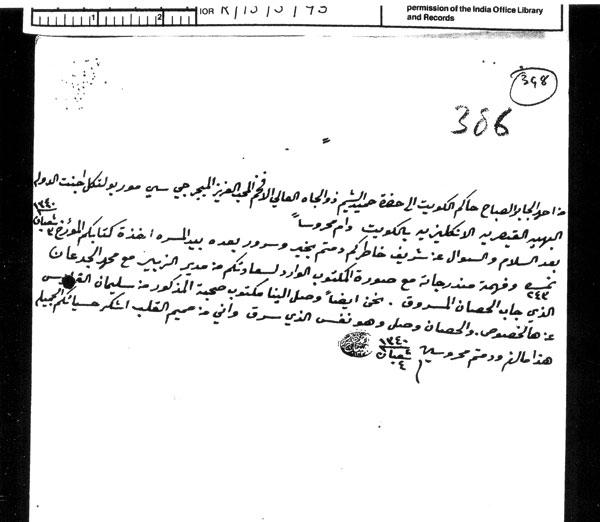 IOR R/15/5/95
permission of the India Office Library
and Records
398
386
من احمد الجابر الصباح حاكم الكويت الى حضرة حميد الشيم ذو الجاه العالي الافخم المحب العزيز الميجر جي سي مور بولتكل اجنت الدوله
البهيه القيصريه الانكليزيه بالكويت دام محروساً
بعد السلام والسوال عن شريف خاطركم دمتم بخير وسرور بعده بيد المسره اخذة كتابكم المؤرخ ٣ شعبان ١٣٤٠
نمرة ٢٤٣ وفهمة مندرجاته مع صورة المكتوب الوارد لسعادتكم من مدير الزبير مع محمد الجدعان
الذي جاب الحصان المسروق . نحن ايضاً وصل الينا مكتوب صحبة المذكور من سليمان
عن هالخصوص. والحصان وصل وهو نفس الذي سرق واني من صميم القلب اشكر حسياتكم الجميله
هذا ما لزم ودمتم محروسين ٤ شعبان ١٣٤٠